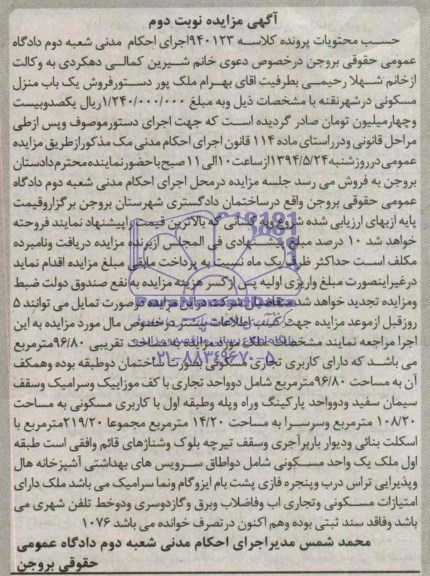 آگهی مزایده نوبت دوم
حسب محتویات پرونده کلاسه ۹۴۰۱۲۳اجرای احکام مدنی شعبه دوم دادگاه
عمومی حقوقی بروجن درخصوص دعوی خانم شیرین کمالی دهکردی به وکالت
ازخانم شهلا رحیمی بطرفیت اقای بهرام ملک پور دستورفروش یک باب منزل
مسکونی درشهرنقنه با مشخصات ذیل وبه مبلغ ۱/۲۴۰/۰۰۰/۰۰۰ریال یکصدوبیست
وچهارمیلیون تومان صادر گردیده است که جهت اجرای دستورموصوف وپس ازطی
مراحل قانونی ودرراستای ماده ۱۱۴ قانون اجرای احکام مدنی مک مذکورازطریق مزایده
عمومی درروزشنبه ۱۳۹۴/۵/۲۴ازساعت ۱۰الی ۱۱صبح باحضورنماینده محترم دادستان
بروجن به فروش می رسد جلسه مزایده درمحل اجرای احکام مدنی شعبه دوم دادگاه
عمومی حقوقی بروجن واقع درساختمان دادگستری شهرستان بروجن برگزاروقیمت
پایه ازبهای ارزیابی شده شروع وبه کسانی که بالاترین قیمت راپیشنهاد نمایند فروخته
خواهد شد ۱۰ درصد مبلغ پیشنهادی فی المجلس ازبرنده مزایده دریافت ونامبرده
مکلف است حداکثر ظرف یک ماه نسبت به پرداخت مابقی مبلغ مزایده اقدام نماید
درغیراینصورت مبلغ واریزی اولیه پس ازکسر هزینه مزایده به نفع صندوق دولت ضبط
ومزایده تجدید خواهد شد متقاضیان شرکت درامر مزایده درصورت تمایل می توانند ۵
روزقبل ازموعد مزایده جهت کسب اطلاعات بیشتر درخصوص مال مورد مزایده به این
اجرا مراجعه نمایند مشخصات ملک مورد مزایده به مساحت تقریبی ۹۶/۸۰مترمربع
می باشد که دارای کاربری تجاری مسکونی بصورت ساختمان دوطبقه بوده وهمکف
آن به مساحت ۹۶/۸۰مترمربع شامل دوواحد تجاری با کف موزاییک وسرامیک وسقف
سیمان سفید ودوواحد پارکینگ وراه وپله وطبقه اول با کاربری مسکونی به مساحت
۱۰۸/۲۰ مترمربع وسرسرا به مساحت ۱۴/۲۰ مترمربع مجموعا ۲۱۹/۲۰مترمربع با
اسکلت بنائی ودیوار باربرآجری وسقف تیرچه بلوک وشناژهای قائم وافقی است طبقه
اول ملک یک واحد مسکونی شامل دواطاق سرویس های بهداشتی آشپزخانه هال
وپذیرایی تراس درب وپنجره فلزی پشت بام ایزوگام ونما سرامیک می باشد ملک دارای
امتیازات مسکونی وتجاری اب وفاضلاب وبرق وگازدوسری ودوخط تلفن شهری می
باشد وفاقد سند ثبتی بوده وهم اکنون درتصرف خوانده می باشد ۱۰۷۶
محمد شمس مدیراجرای احکام مدنی شعبه دوم دادگاه عمومی
حقوقی بروجن
۰۲۱-۸۸۳۴۹۶۷۰-۵